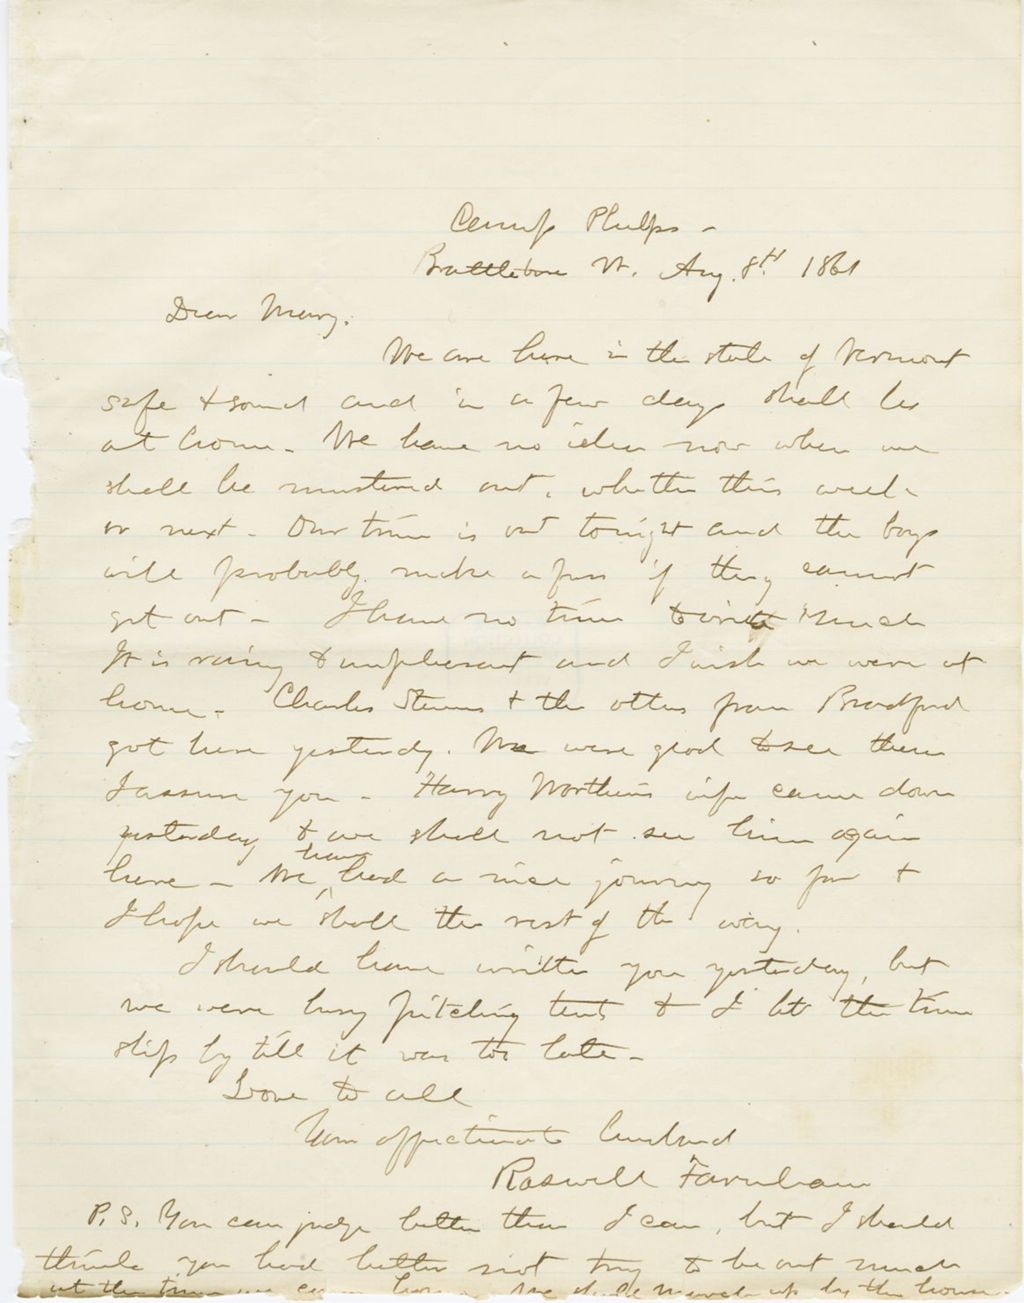 Camp Phelps -
Brattleboro Vt. Aug. 8th 1861
Dear Mary.
We are here in the state of Vermont
safe & sound and in a few days shall be
at home - We have no idea now when we
shall be mustered out, whether this week
or next - Our time is out tonight and the boys
will probably make a fuss if they cannot
get out - I have no time to write much
It is rainy & unpleasant and I wish we were at
home - Charles Stevens & the others from Bradford
got here yesterday. We were glad to see them
I assure you - Harry Worthens wife came down
yesterday & we shall not see him again
here - We have had a nice journey so far &
I hope we shall the rest of the way.
I should have written you yesterday, but
we were busy pitching tents & I let the time
slip by till it was too late -
Love to all
Your affectionate husband
Roswell Farnham
P.S. You can judge better than I can, but I should
think you had better not try to be out much
at the time we come home. We shall march up by the house